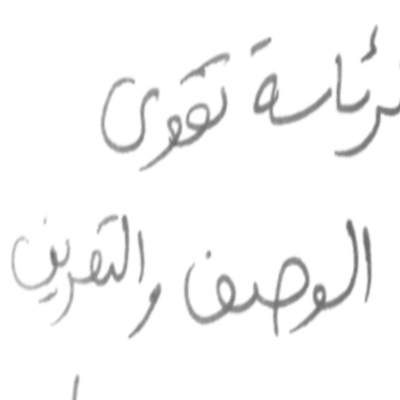 رئاسة تقوى
الوصف والتعريف